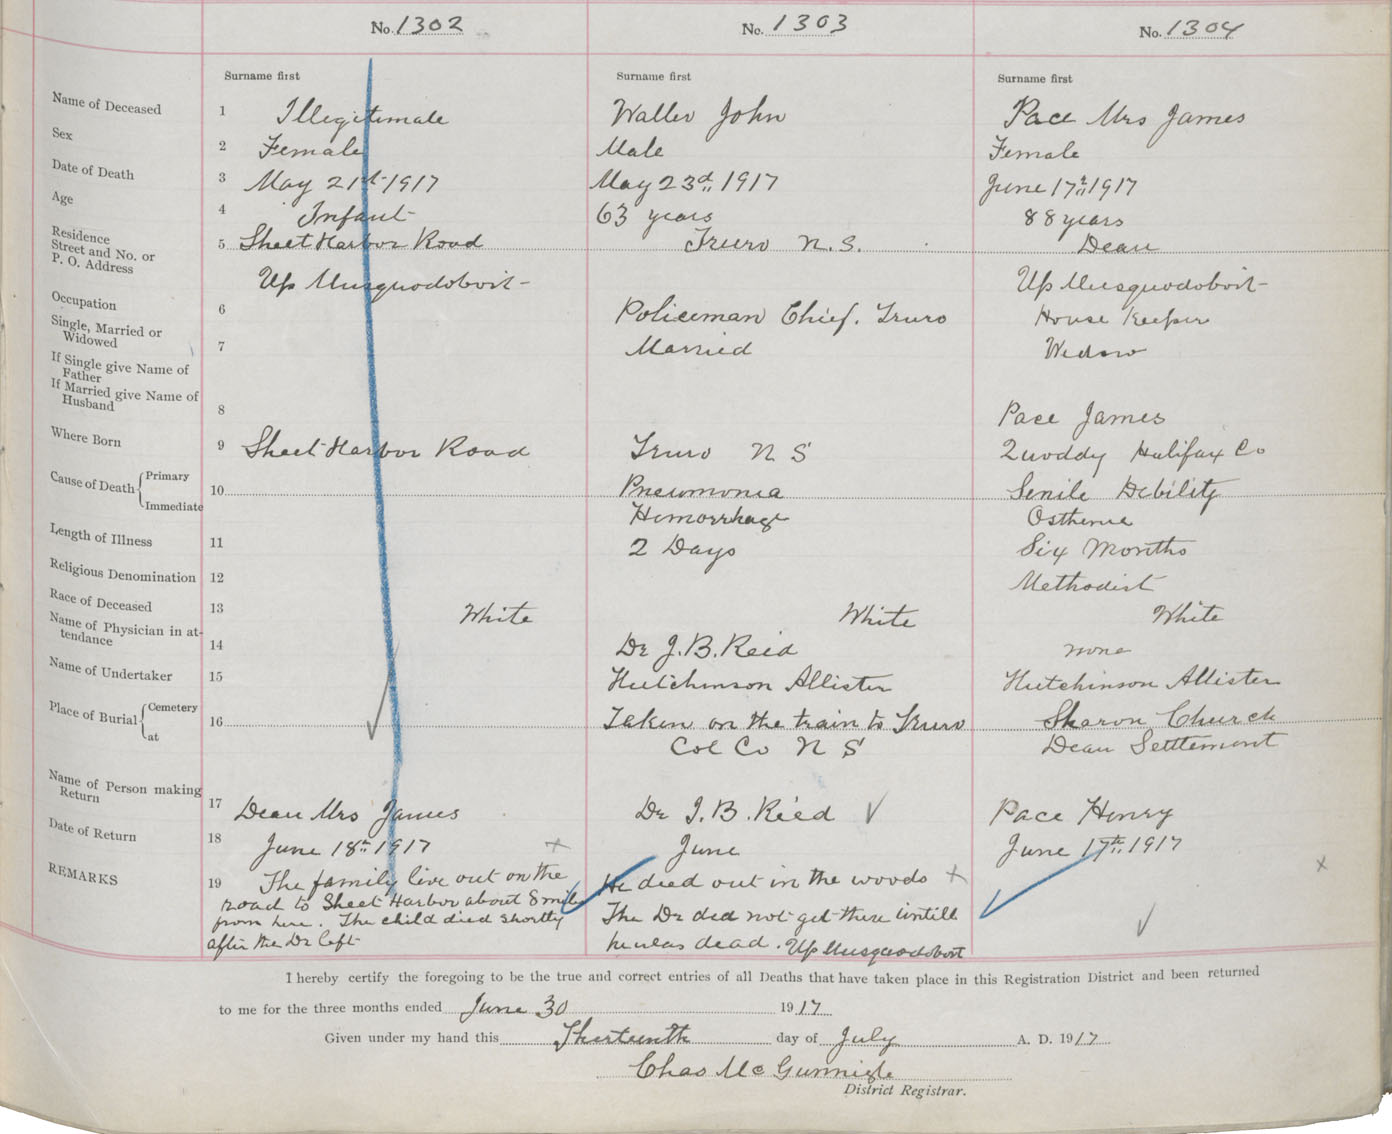 No. 1302 No. 1303 No. 1304
Surname first Surname first Surname first
Name of Deceased 1 Illegitimate Waller John Pace Mrs James
Sex 2 Female Male Female
Date of Death 3 May 21st 1917 May 23d 1917 June 17th 1917
Age 4 Infant 63 years 88 years
Residence
Street and No. or 5 Sheet Harbor Road Truro N.S. Dean
P. O. Address
Up Musquodoboit Up Musquodoboit
Occupation 6 Policeman Chief. Truro House Keeper
Single, Married or
Widowed 7 Married Widow
If Single give Name of
Father
If Married give Name of
Husband 8 Pace James
Where Born 9 Sheet Harbor Road Truro N S Quoddy Halifax Co
Cause of Death Primary
10 Pneumonia Senile Debility
Immediate Hemorrhage Osthenia
Length of Illness 11 2 Days Six Months
Religious Denomination 12 Methodist
Race of Deceased 13 White White White
Name of Physician in at-
tendance 14 Dr J.B. Reid none
Name of Undertaker 15 Hutchinson Allister Hutchinson Allister
Place of Burial Cemetery
16 Taken on the train to Truro Sharon Church
at Col Co N S Dean Settlement
Name of Person making
Return 17 Dean Mrs James Dr J.B. Reid Pace Henry
Date of Return 18 June 18th 1917 June June 17th 1917
REMARKS 19 The family live out on the He died out in the woods
road to Sheet Harbor about 8 miles The Dr did not get there untill
from here. The child died shortly he was dead. Up Musquodoboit
after the Dr left
I hereby certify the foregoing to be the true and correct entries of all Deaths that have taken place in this Registration District and been returned
to me for the three months ended June 30 1917
Given under my hand this Thirteenth day of July A. D. 1917
Chas Mc Gunnigle
District Registrar.